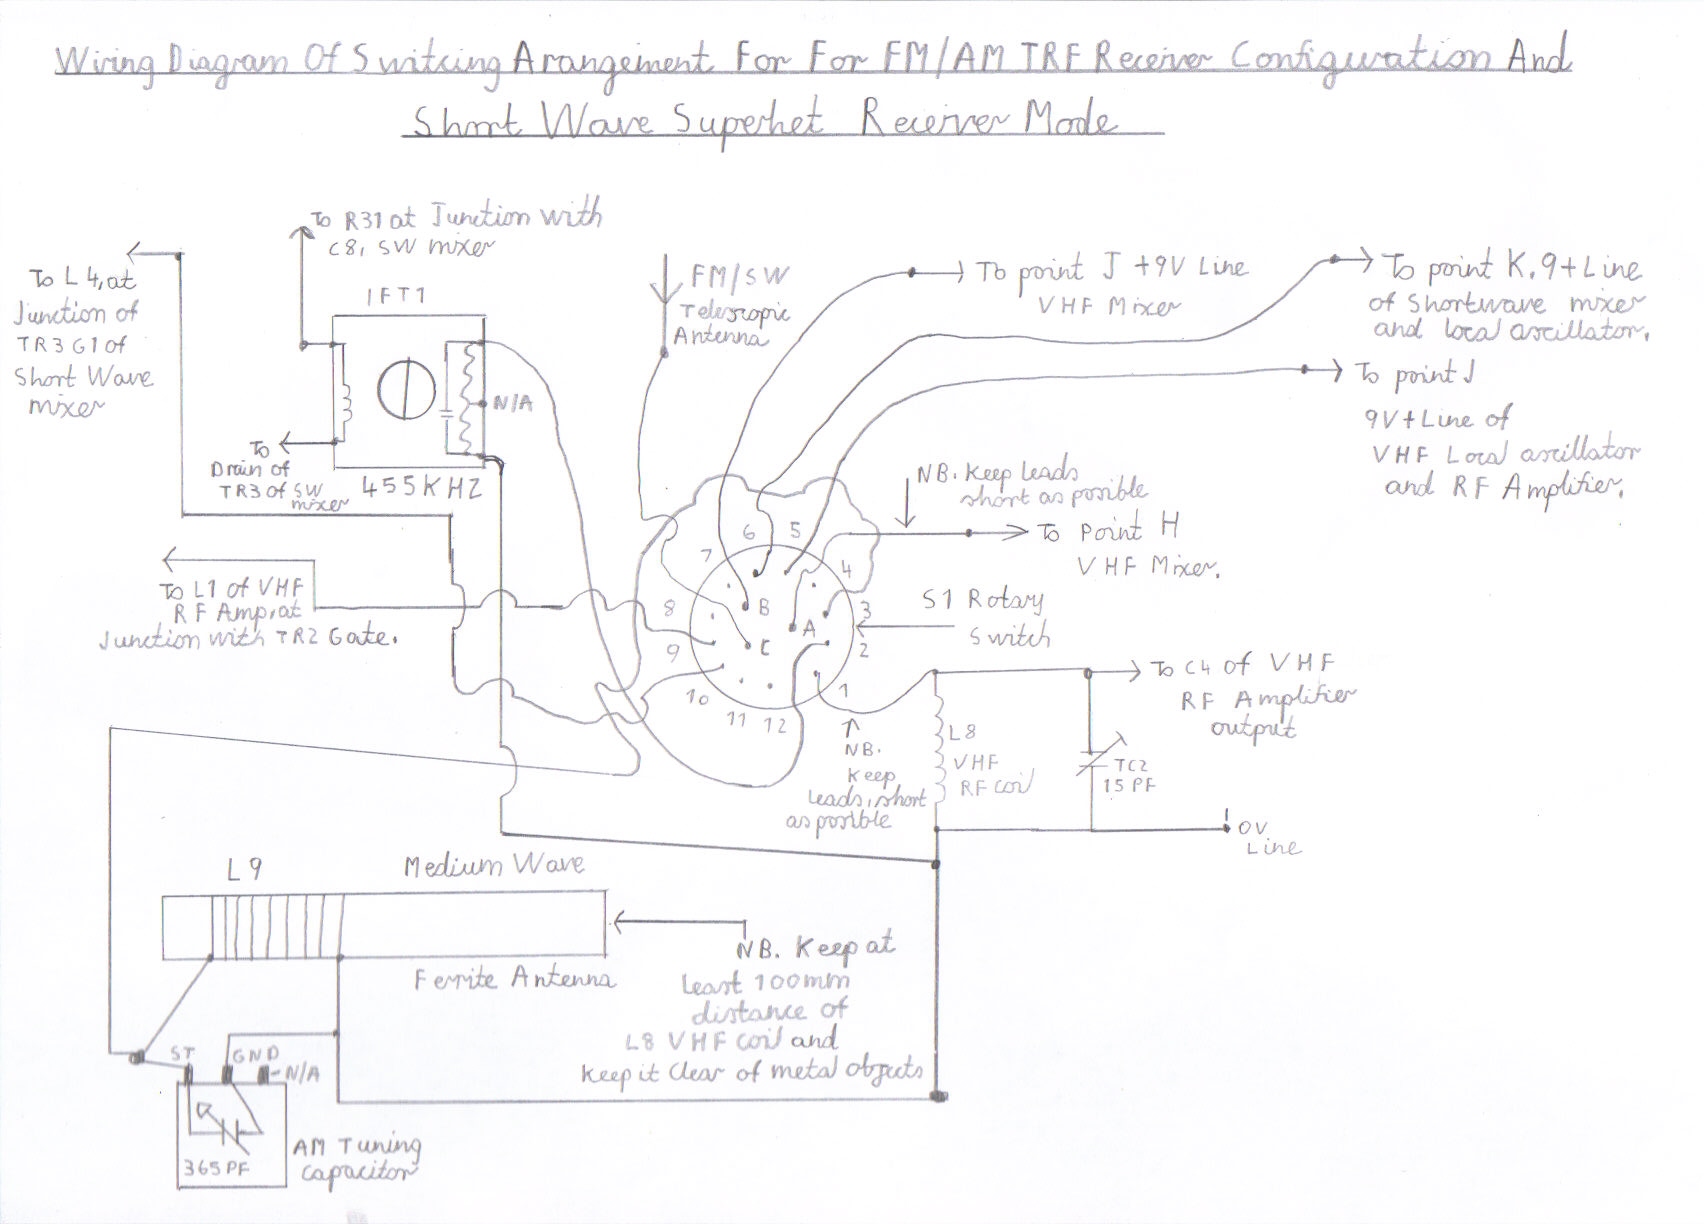 Wiring Diagram Of Switcing Arangement For For FM/AM TRF Receiver Configuration And
Short Wave Superhet Receiver Mode
To R31 at Junction with
C8, SW mixer
To L4, at
Junction of
TR3 G1 of
Short Wave
mixer
IFT1
N/A
To
Drain of
TR3 of SW
mixer
455KHZ
FM/SW
Telescopic
Antenna
To point J +9V Line
VHF Mixer
To point K, 9+Line
of Shortwave mixer
and local oscillator.
To point J
9V+Line of
VHF Local oscillator
and RF Amplifier.
NB. Keep leads
short as posible
To Point H
VHF Mixer.
To L1 of VHF
RF Amp, at
Junction with TR2 Gate.
6
5
7
4
8
B
A
3
9
C
2
10
1
11
12
S1 Rotary
Switch
NB.
Keep
leads, short
as posible
To C4 of VHF
RF Amplifier
output
L8
VHF
RF coil
TC2
15 PF
0V
Line
L9
Medium Wave
Ferrite Antenna
NB. Keep at
least 100mm
distance of
L8 VHF coil and
keep it clear of metal objects
ST
GND
N/A
365PF
AM Tuning
capacitor